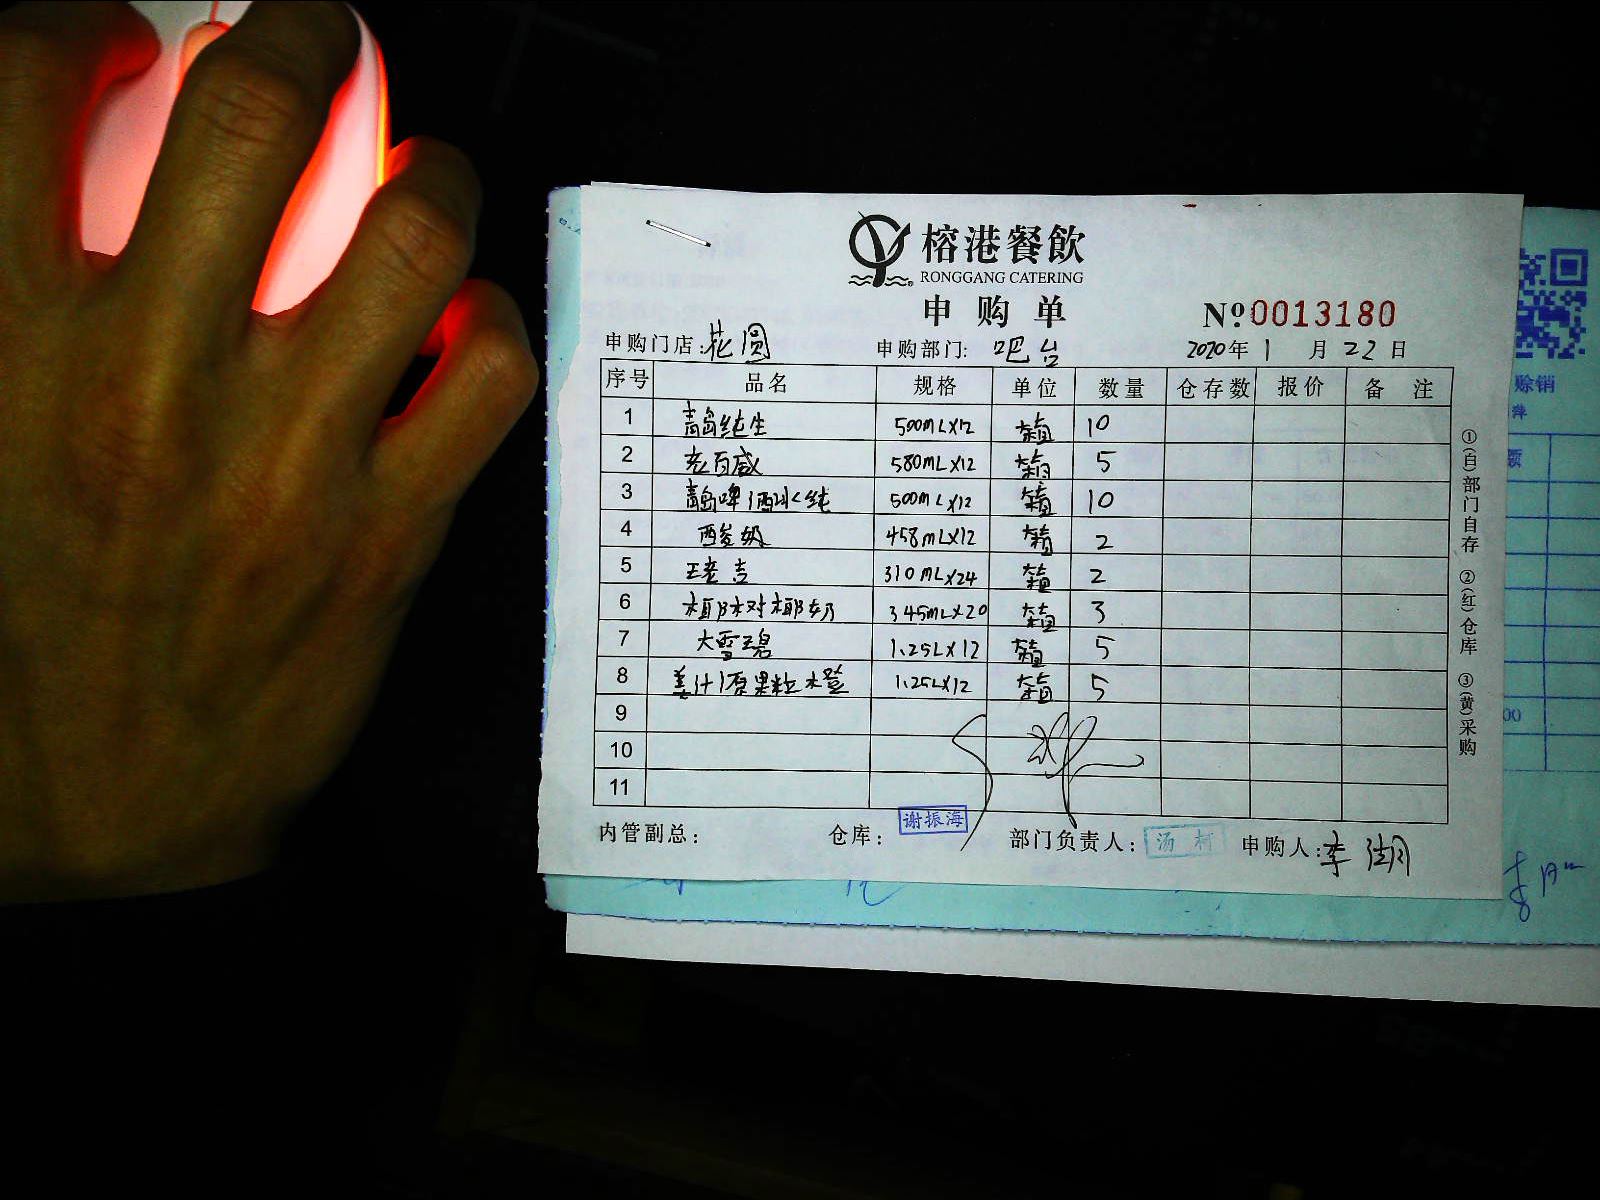 榕港餐飲
RONGGANG CATERING
申购单
№0013180
申购门店:花圆 申购部门: 吧台 2020年1月22日
序号 品名 规格 单位 数量 仓存数 报价 备注
1 青岛纯生 500mL×12 箱 10
2 老百威 580mL×12 箱 5
3 青岛啤酒小纯 500mL×12 箱 10
4 酸奶 458mL×12 箱 2
5 王老吉 310mL×24 箱 2
6 椰树椰奶 345mL×20 箱 3
7 大雪碧 1.25L×12 箱 5
8 美汁源果粒橙 1.25L×12 箱 5
9
10
11
内管副总: 仓库: 谢振海 部门负责人: 汤柯 申购人:李湖
①(白)部门自存 ②(红)仓库 ③(黄)采购
赊销